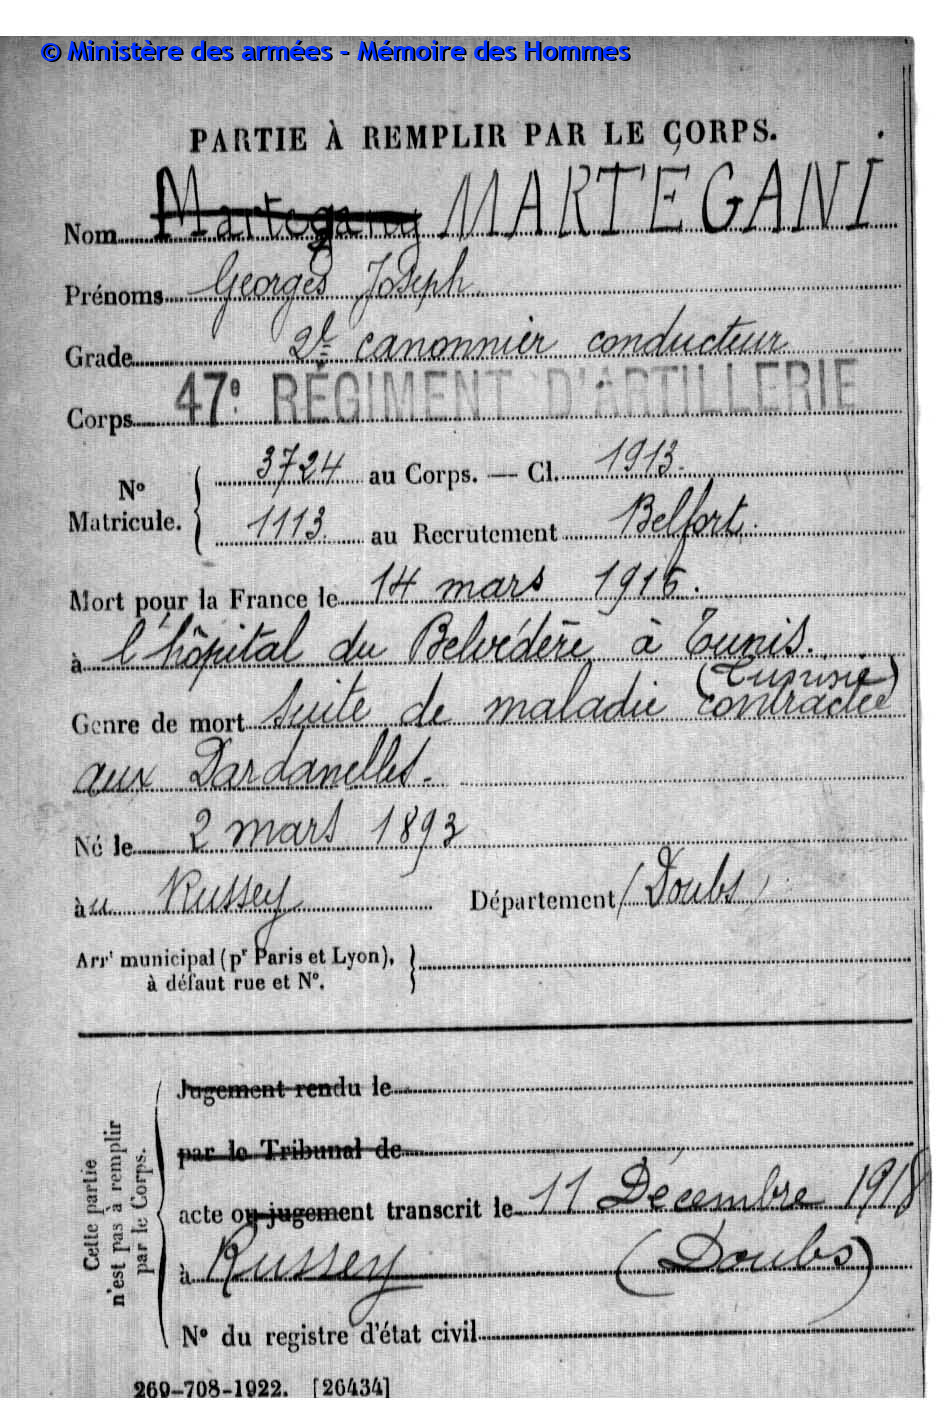 © Ministère des armées - Mémoire des Hommes
PARTIE À REMPLIR PAR LE CORPS.
Nom Martegany MARTEGANI
Prénoms Georges Joseph
Grade 2e canonnier conducteur
Corps 47e RÉGIMENT D'ARTILLERIE
No Matricule. { 3724 au Corps. — Cl. 1913.
1113. au Recrutement Belfort.
Mort pour la France le 14 mars 1916.
à l'hôpital du Belvédère à Tunis.
(Tunisie)
Genre de mort suite de maladie contractée
aux Dardanelles.
Né le 2 mars 1893
au Russey Département (Doubs)
Arrt municipal (pr Paris et Lyon), }
à défaut rue et No.
Cette partie n'est pas à remplir par le Corps.
Jugement rendu le
par le Tribunal de
acte ou jugement transcrit le 11 Décembre 1918
à Russey (Doubs)
No du registre d'état civil
269-708-1922. [26434]